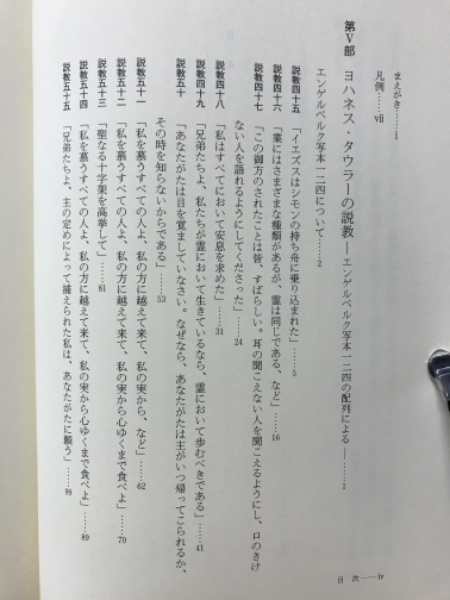 まえがき……i
凡例……vii
第Ⅴ部 ヨハネス・タウラーの説教―エンゲルベルク写本一二四の配列による―……1
エンゲルベルク写本一二四について……2
説教四十五 「イエズスはシモンの持ち舟に乗り込まれた」……5
説教四十六 「業にはさまざまな種類があるが、霊は同じである、など」……16
説教四十七 「この御方のされたことは皆、すばらしい。耳の聞こえない人を聞こえるようにし、口のきけ
ない人を語れるようにしてくださった」……24
説教四十八 「私はすべてにおいて安息を求めた」……31
説教四十九 「兄弟たちよ、私たちが霊において生きているなら、霊において歩むべきである」……41
説教五十 「あなたがたは目を覚ましていなさい。なぜなら、あなたがたは主がいつ帰ってこられるか、
その時を知らないからである」……53
説教五十一 「私を慕うすべての人よ、私の方に越えて来て、私の実から、など」……62
説教五十二 「私を慕うすべての人よ、私の方に越えて来て、私の実から心ゆくまで食べよ」……70
説教五十三 「聖なる十字架を高挙して」……81
説教五十四 「私を慕うすべての人よ、私の方に越えて来て、私の実から心ゆくまで食べよ」……89
説教五十五 「兄弟たちよ、主の定めによって捕えられた私は、あなたがたに願う」……95
目 次――iv